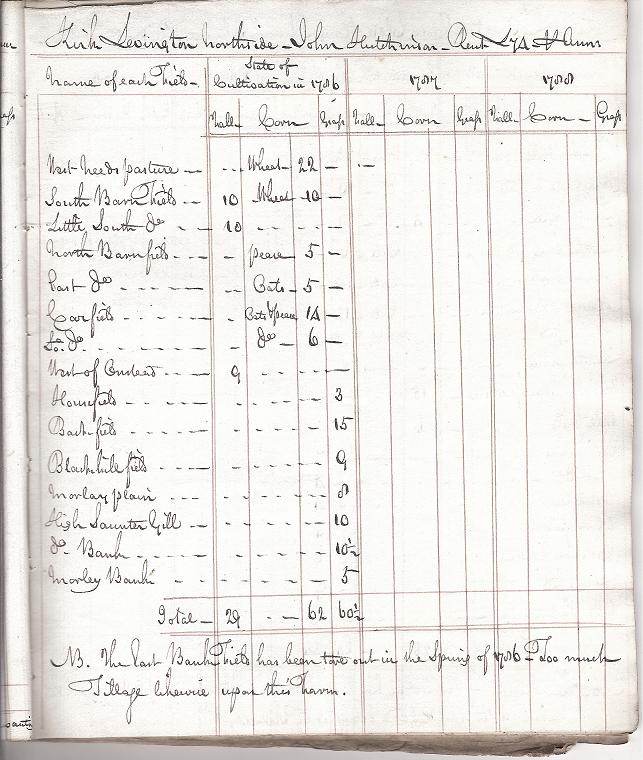 Kirk Levington Northside - John Hutchinson - Rent £74 P Ann
Name of each Field - State of Cultivation in 1786 1787 1788
Fall - Corn Grass Fall - Corn Grass Fall - Corn - Grass
West Needs pasture - Wheat 22 -
South Barn Field - 10 Wheat 10 -
Little South Do - 10
North Barnfield - pease 5 -
East Do - Oats 5 -
Carfield - Oats & pease 14 -
Do - Do 6 -
West of 9
Housefield 3
Backfield 15
Blackhill field 9
Morlay plain 8
High Saunter Gill 10
Do Bank 10½
Morley Bank 5
Total - 29 - 62 60½
NB. The East Bank Field has been tore out in the Spring of 1786 - Too much
Tillage likewise upon this Farm.